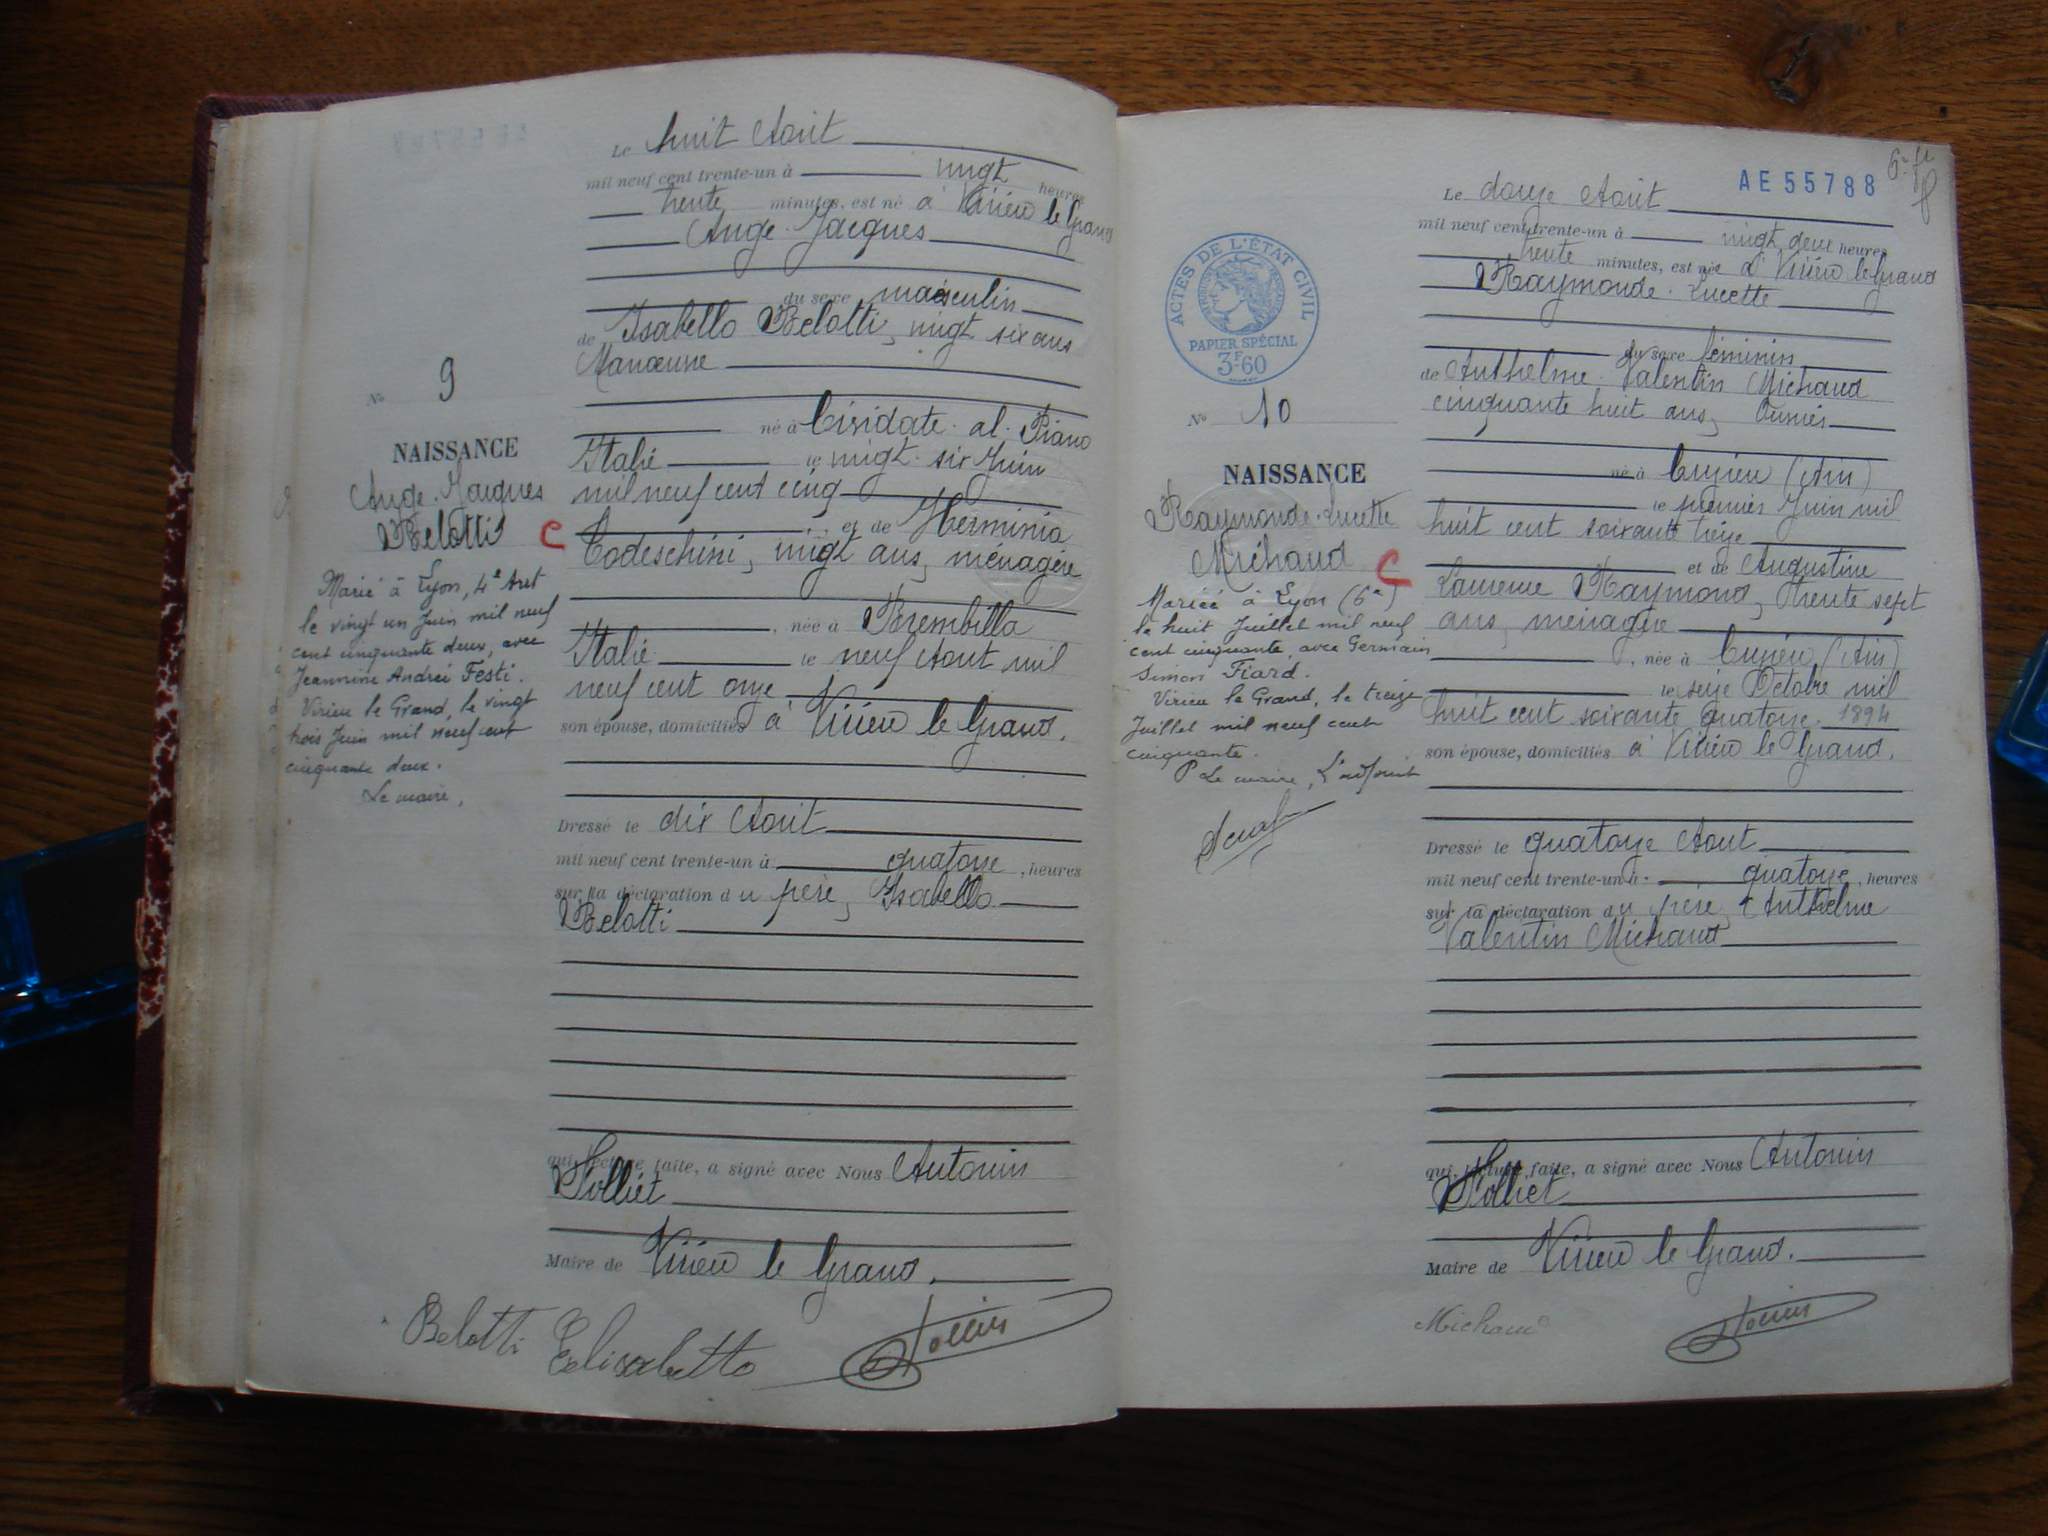 Le huit Aout
mil neuf cent trente-un à vingt heures
trente minutes, est né à Virieu le Grand
Ange Jacques
du sexe masculin
de Isabello Belotti, vingt six ans
Manœuvre
né à Cividate al Piano
Italie le vingt-six Juin
mil neuf cent cinq
et de Herminia
Todeschini, vingt ans, ménagère
, née à Brembilla
Italie le neuf Aout mil
neuf cent onze
son épouse, domiciliés à Virieu le Grand.
Dressé le dix Aout
mil neuf cent trente-un à quatorze, heures
sur la déclaration du père, Isabello
Belotti
qui, lecture faite, a signé avec Nous Antonin
Solliet
Maire de Virieu le Grand.
Belotti Eelisabetto
No 9
NAISSANCE
Ange-Jacques
Belotti C
Marié à Lyon, 4e Art
le vingt un Juin mil neuf
cent cinquante deux, avec
Jeannine Andrée Festi.
Virieu le Grand, le vingt
trois Juin mil neuf cent
cinquante deux.
Le maire,
AE 55788
Le douze Aout
mil neuf cent trente-un à vingt deux heures
trente minutes, est née à Virieu le Grand
Raymonde Lucette
du sexe féminin
de Anthelme Valentin Michaud
cinquante huit ans,
né à Cuzieu (Ain)
le premier Juin mil
huit cent soixante treize
et de Augustine
Laurence Raymond, trente sept
ans, ménagère
, née à Cuzieu (Ain)
le seize Octobre mil
huit cent soixante quatorze. 1894
son épouse, domiciliés à Virieu le Grand.
Dressé le quatorze Aout
mil neuf cent trente-un à quatorze, heures
sur la déclaration du père, Anthelme
Valentin Michaud
qui, lecture faite, a signé avec Nous Antonin
Solliet
Maire de Virieu le Grand.
Michaud
ACTES DE L'ÉTAT CIVIL
PAPIER SPÉCIAL
3F60
No 10
NAISSANCE
Raymonde-Lucette
Michaud C
Mariée à Lyon (6e)
le huit Juillet mil neuf
cent cinquante, avec Germain
Simon Fiard.
Virieu le Grand, le treize
Juillet mil neuf cent
cinquante.
P Le maire, L'adjoint